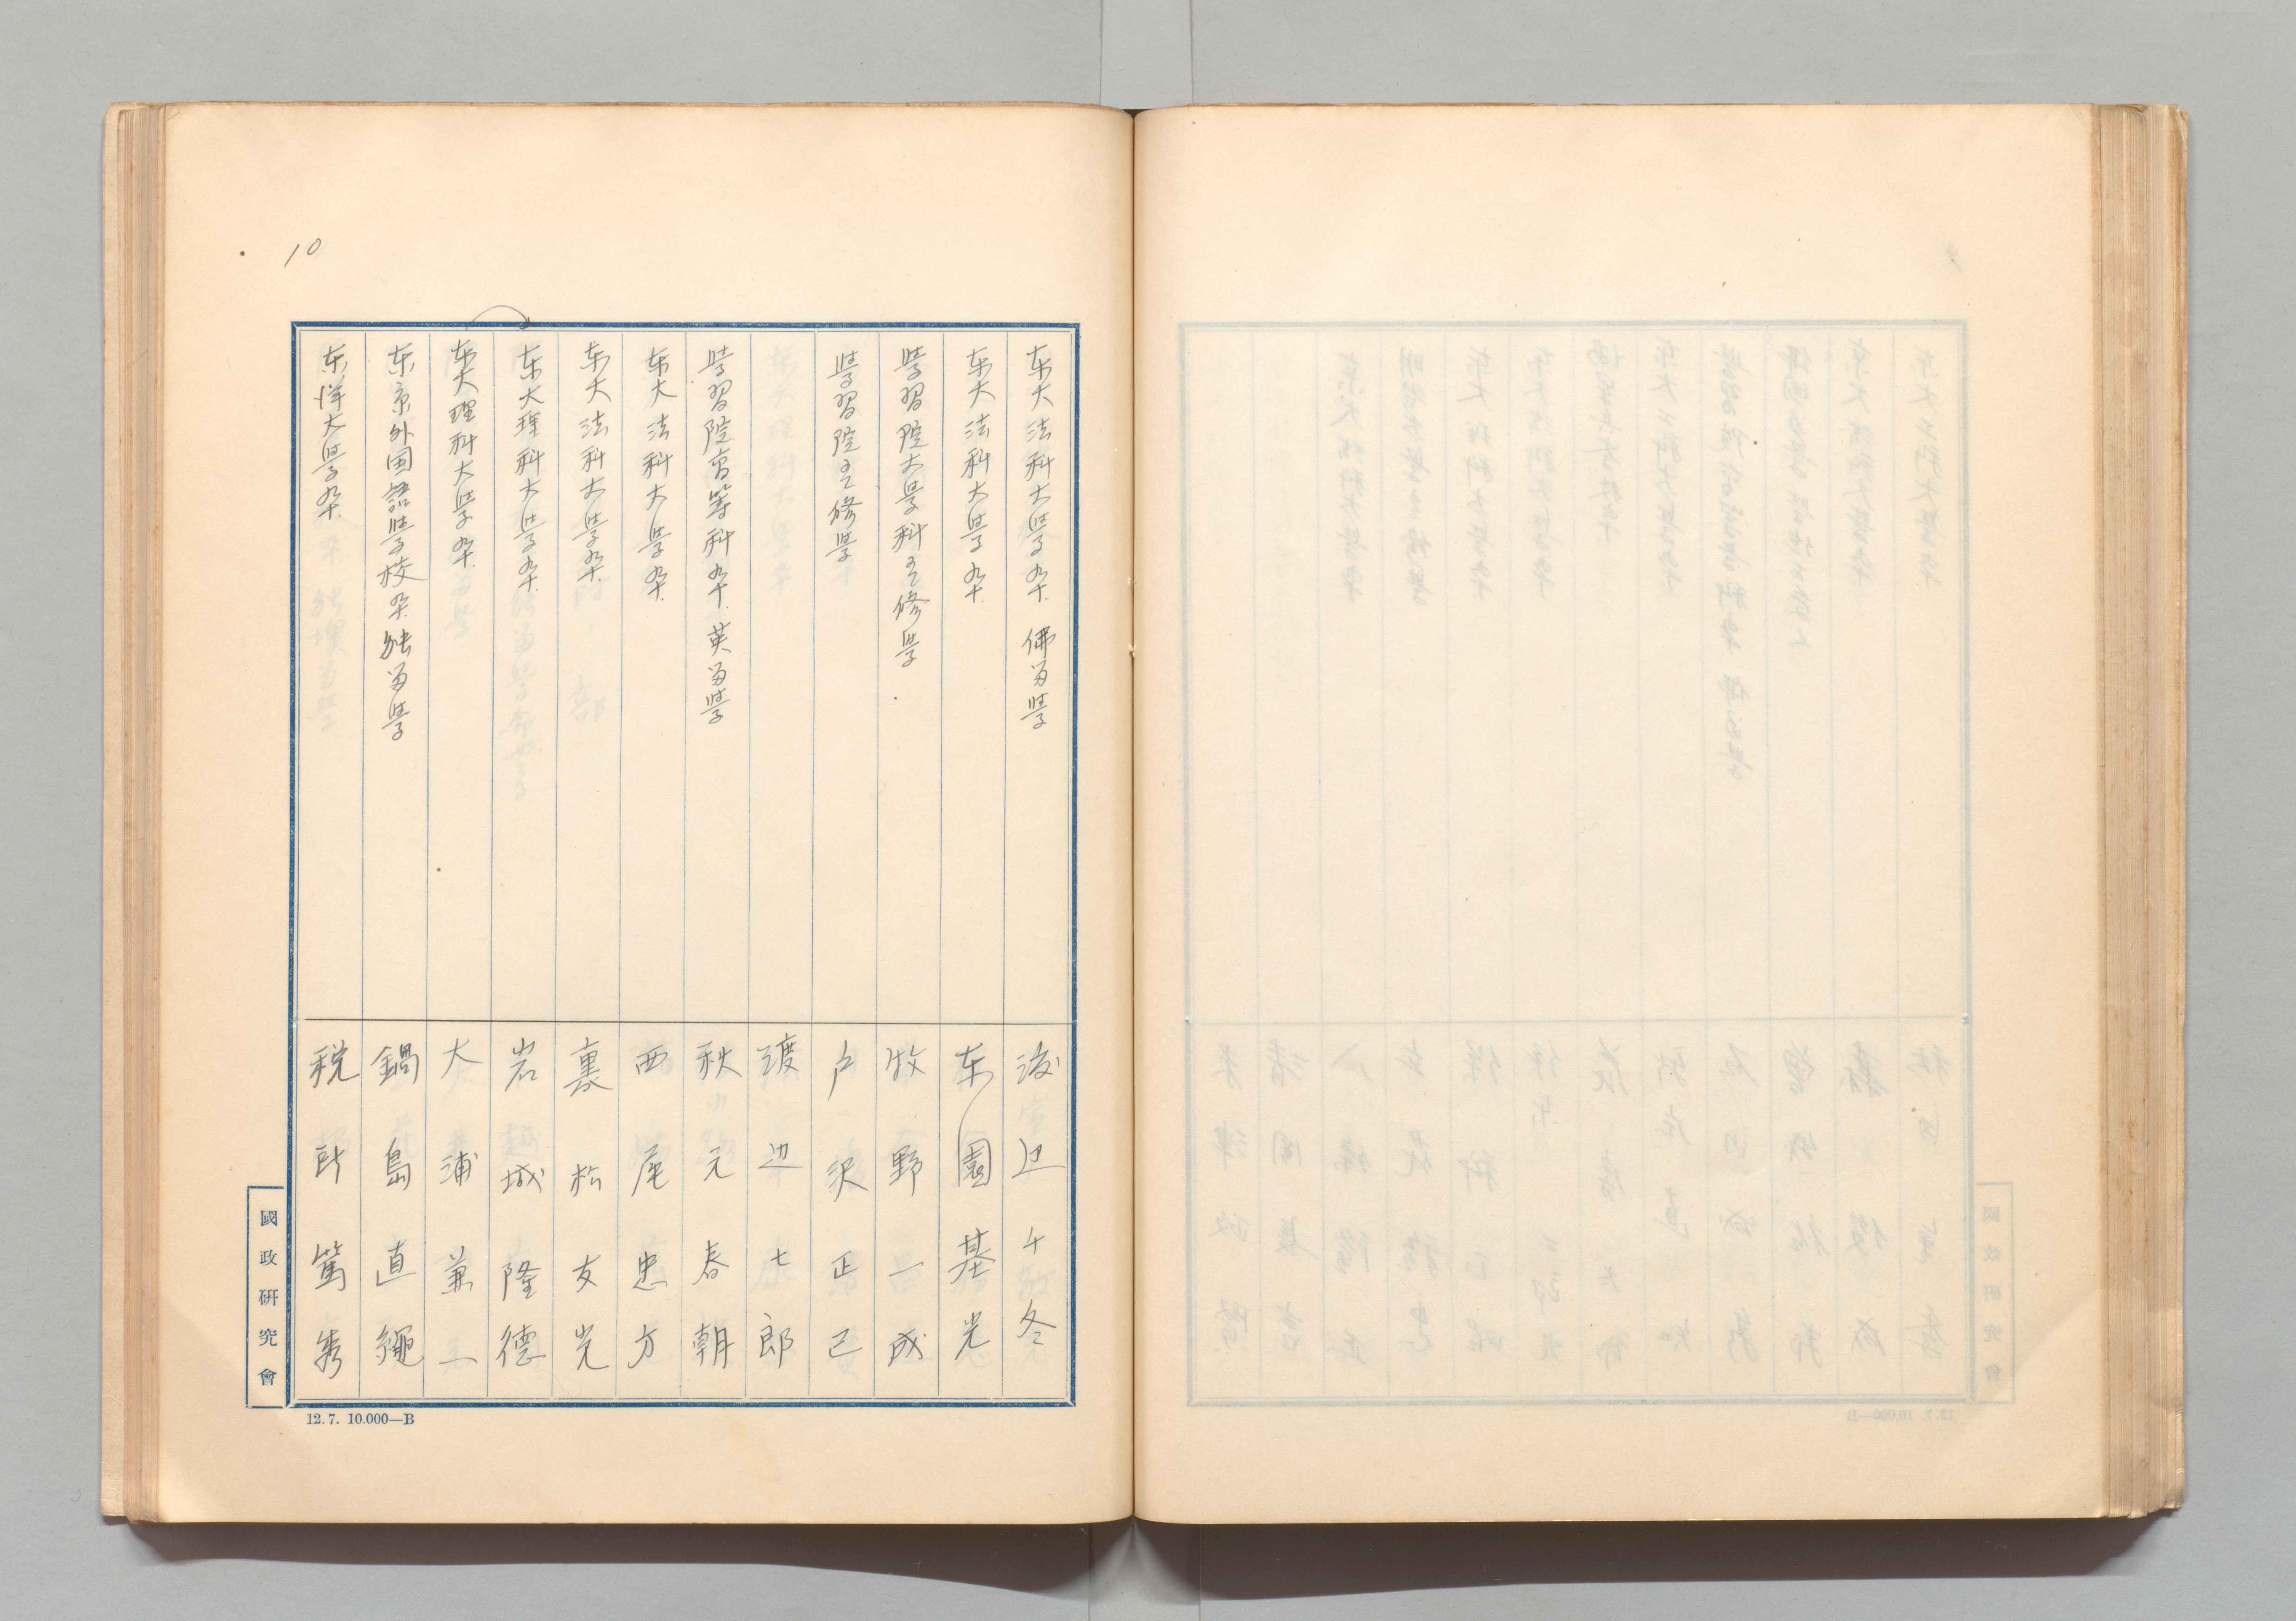 10
东大法科大學卒 佛留學 渡辺千冬
东大法科大學卒 东園基光
學習院大學科ニ修學 牧野一成
學習院ニ修學 戸沢正己
渡辺七郎
學習院高等科卒 英留學 秋元春朝
东大法科大學卒 西尾忠方
东大法科大學卒 裏松友光
东大理科大學卒 岩城隆德
东大理科大學卒 大浦兼一
东京外国語學校卒 独留學 鍋島直繩
东洋大學卒 税所篤秀
國政研究會
12.7. 10.000—B